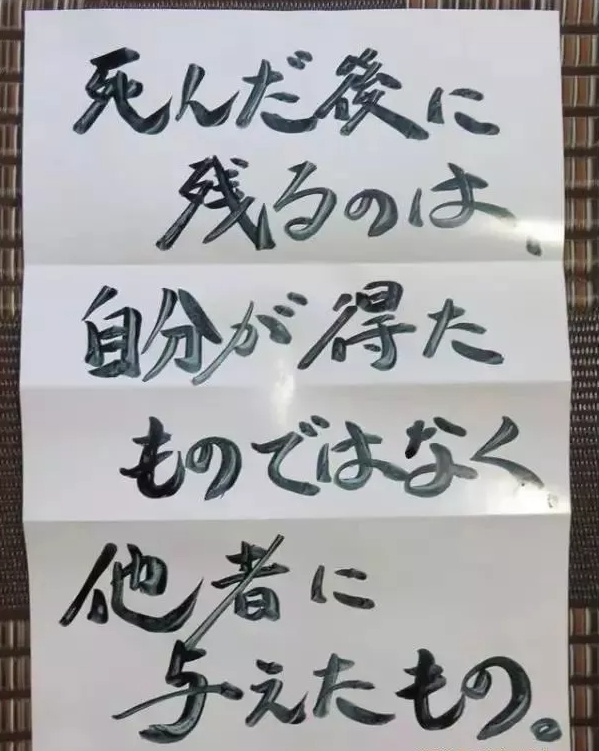 死んだ後に
残るのは、
自分が得た
ものではなく、
他者に
与えたもの。